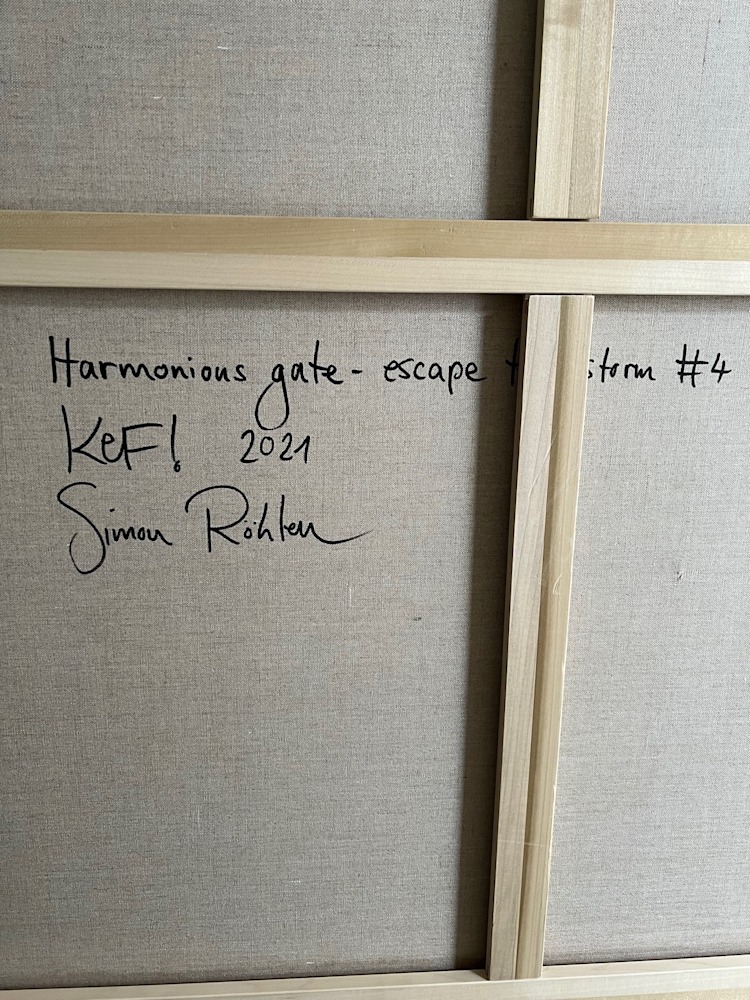 Harmonious gate - escape storm #4
KeF! 2021
Simon Röhlen